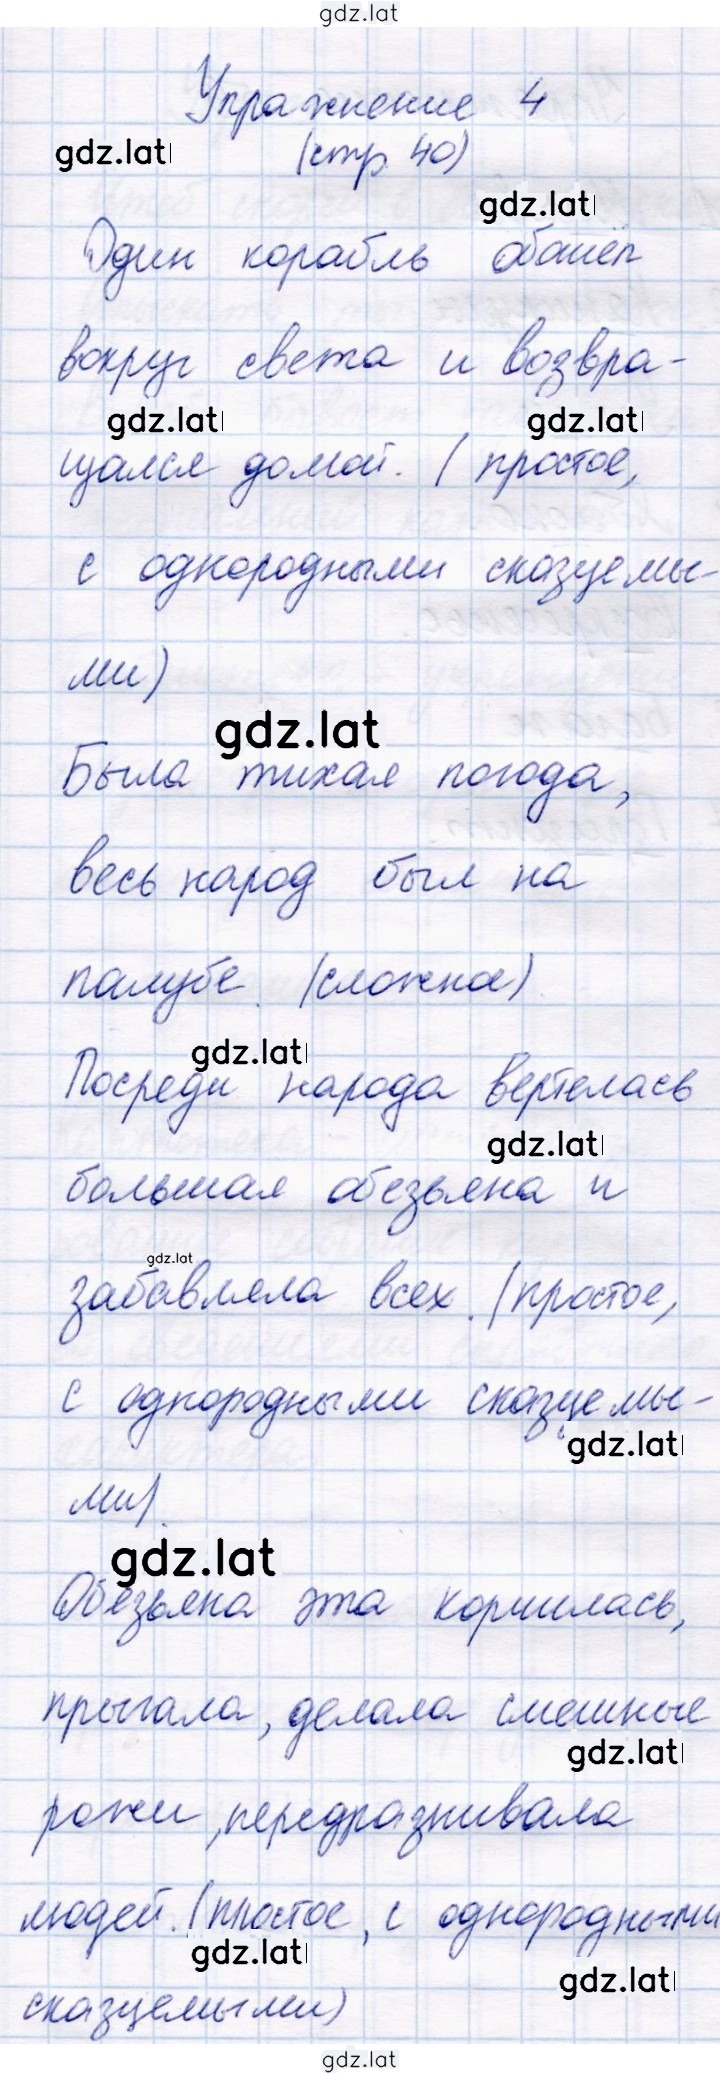 gdz.lat
Упражнение 4
gdz.lat
(стр 40)
gdz.lat
Один корабль обошёл
вокруг света и возвра-
gdz.lat gdz.lat
щался домой. (простое,
с однородными сказуемы-
ми)
gdz.lat
Была тихая погода,
весь народ был на
палубе. (сложное)
gdz.lat
Посреди народа вертелась
gdz.lat
большая обезьяна и
gdz.lat
забавляла всех. (простое,
с однородными сказуемы-
gdz.lat
ми).
gdz.lat
Обезьяна эта корчилась,
прыгала, делала смешные
gdz.lat
рожи, передразнивала
людей. (простое, с однородными
gdz.lat
gdz.lat
сказуемыми)
gdz.lat